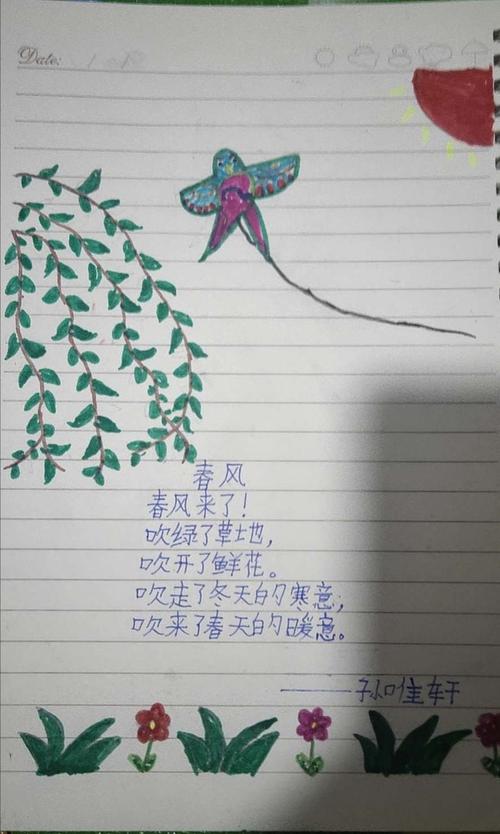 Date:
春风
春风来了!
吹绿了草地,
吹开了鲜花。
吹走了冬天的寒意;
吹来了春天的暖意。
——孙唯轩